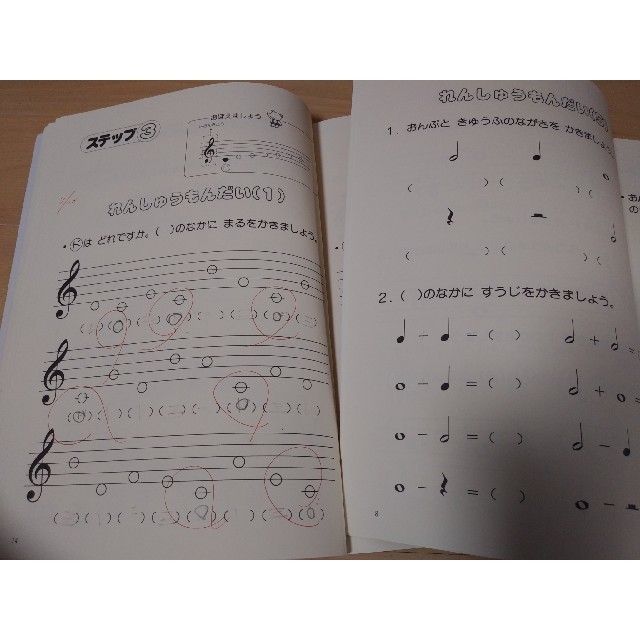 ステップ 3
おぼえましょう
れんしゅうもんだい(1)
・ドは どれですか。( )のなかに まるをかきましょう。
れんしゅうもんだい
1. おんぷと きゅうふのながさを かきましょう
( ) ( ) (
( ) ( ) (
2. ( )のなかに すうじをかきましょう。
− = ( ) + =
− = ( ) + =
− = ( ) −
− = ( ) −
8
・おん
の